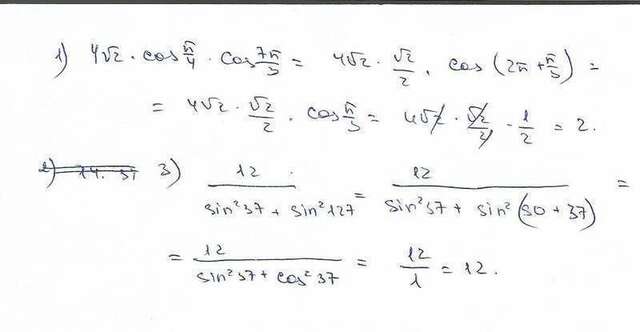 1) 4√2 · cos π/4 · cos 7π/3 = 4√2 · √2/2 · cos (2π + π/3) =
= 4√2 · √2/2 · cos π/3 = 4√2 · √2/2 · 1/2 = 2.
3) 12/(sin²37 + sin²127) = 12/(sin²37 + sin²(90 + 37)) =
= 12/(sin²37 + cos²37) = 12/1 = 12.